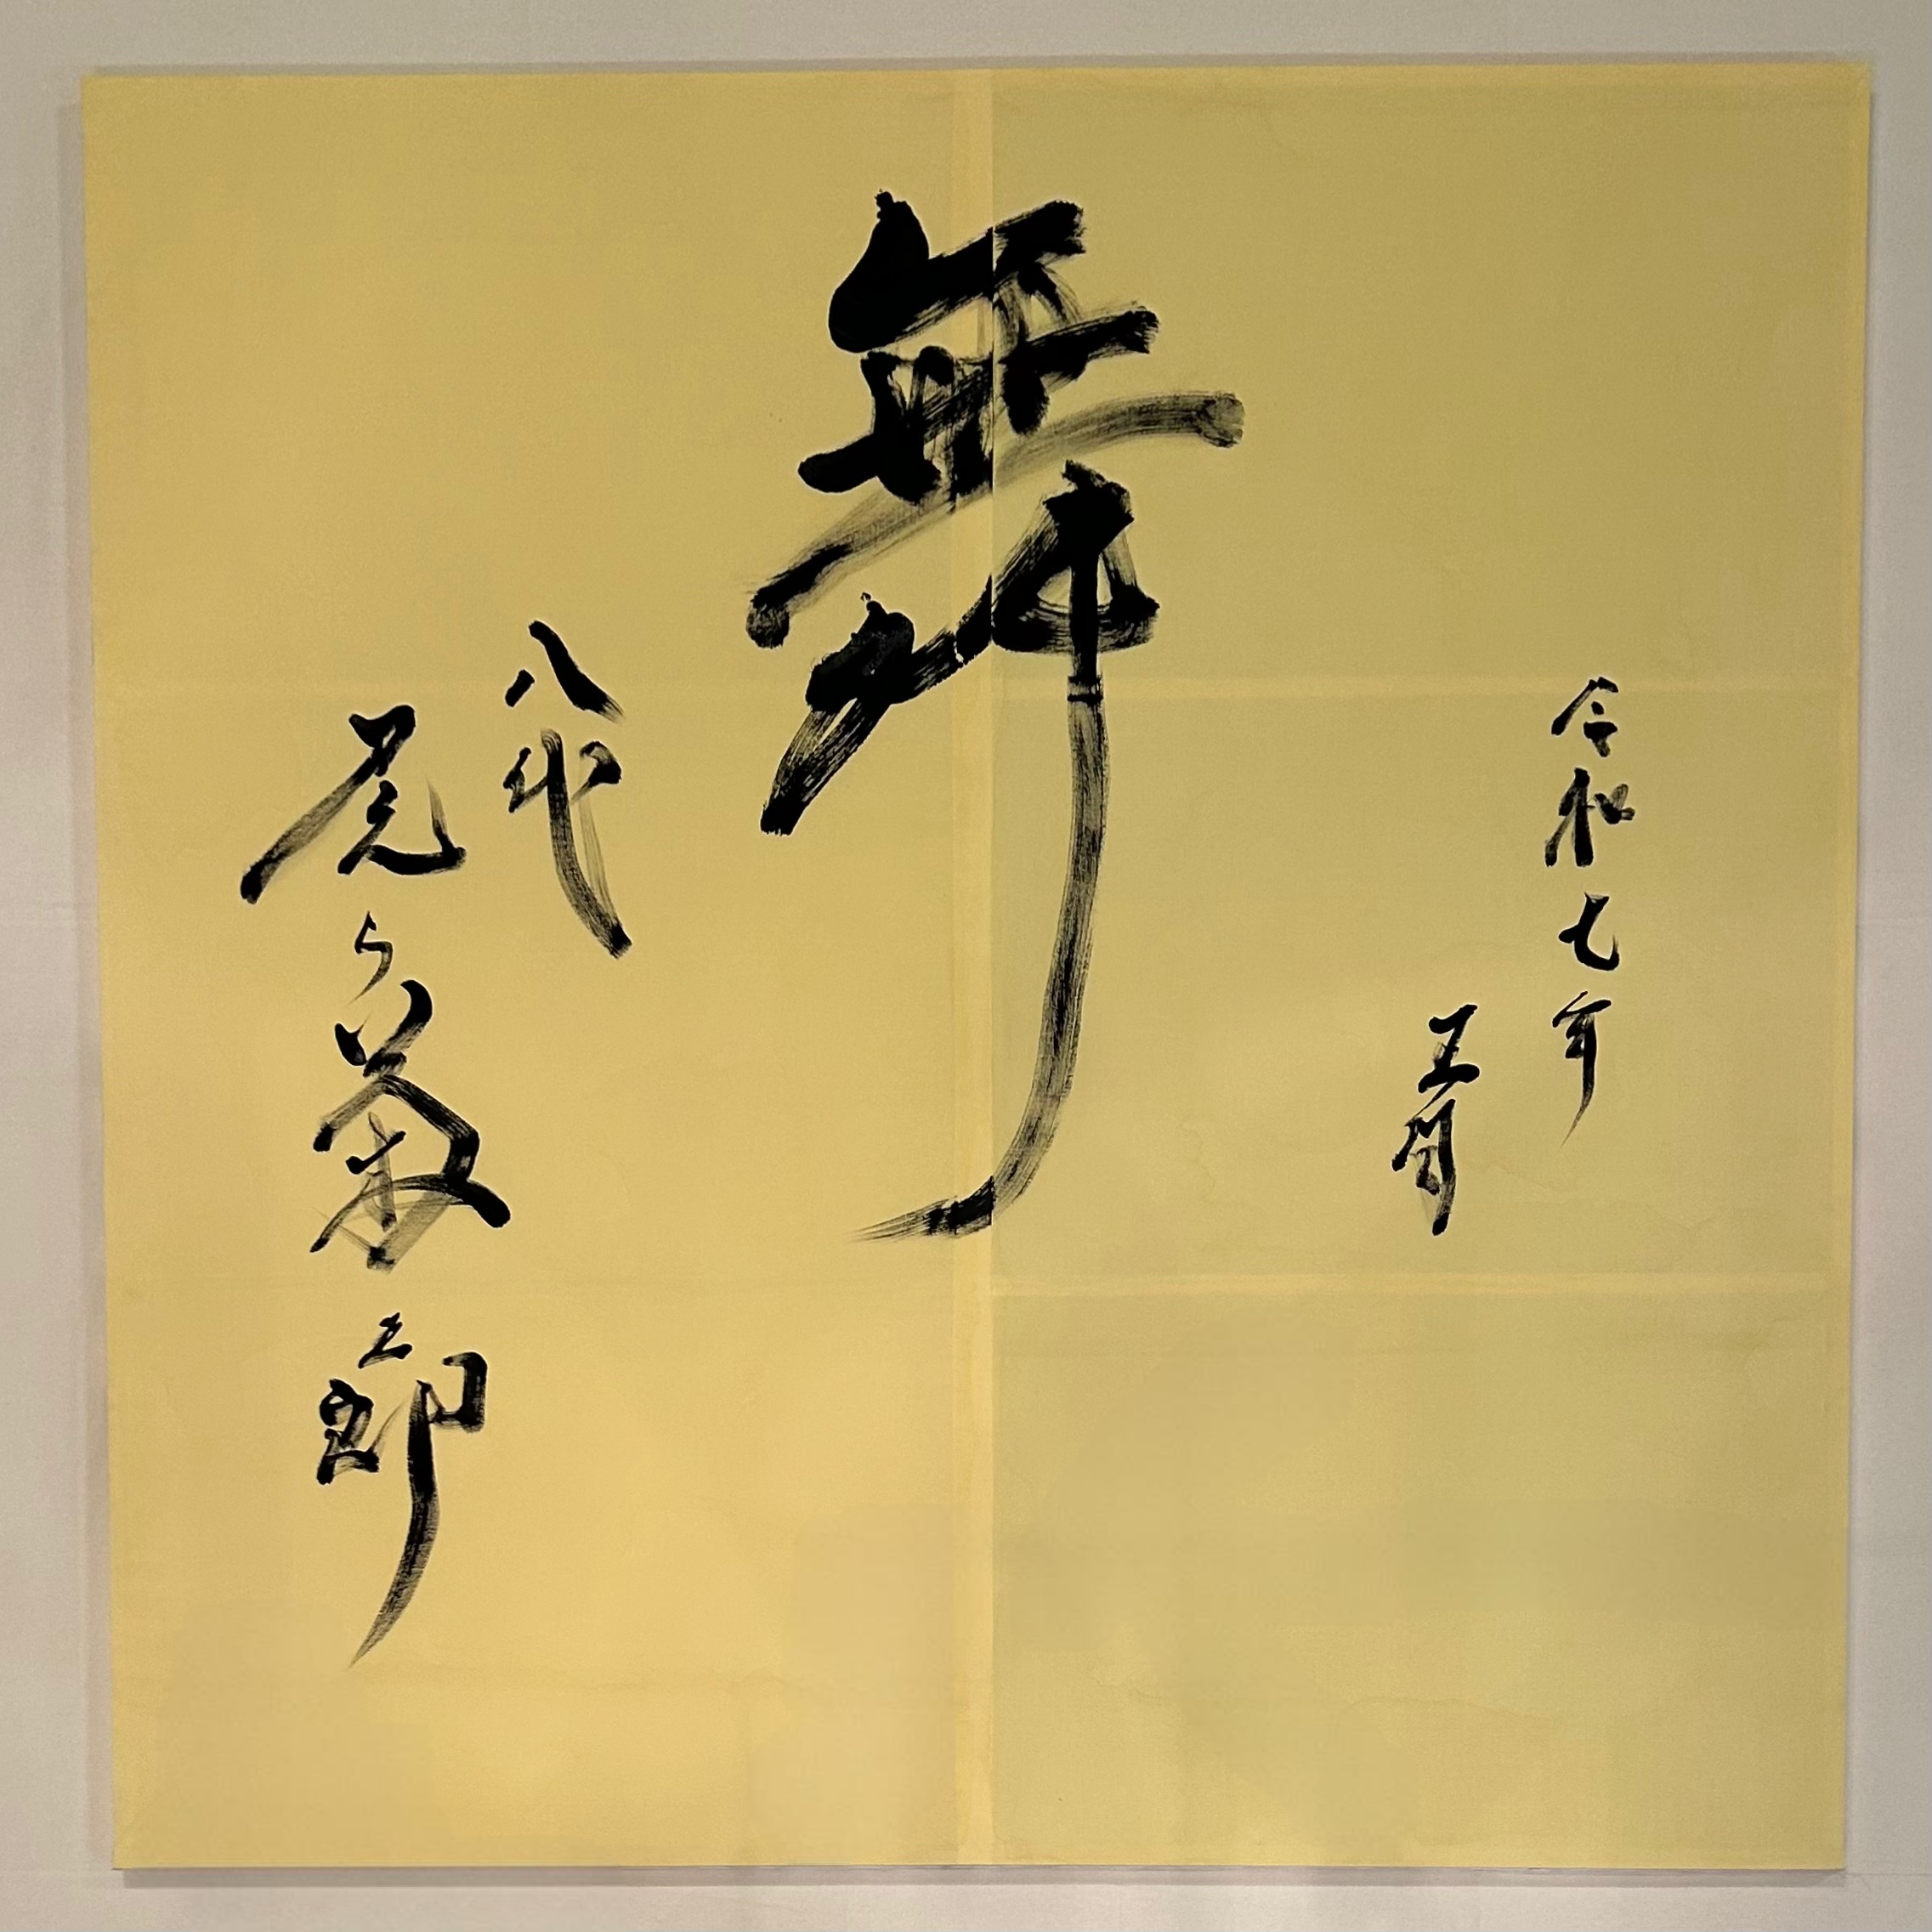 令和七年
五月
舞
八代
尾上菊五郎